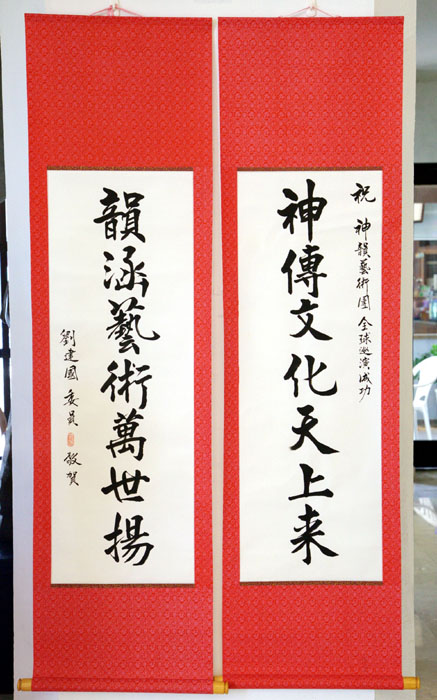 祝 神韻藝術團 全球巡演成功
神傳文化天上来
韻涵藝術萬世揚
劉建國 委員 敬賀